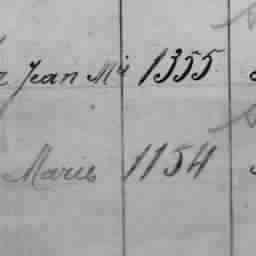 Jean Mie 1355
Marie 1154